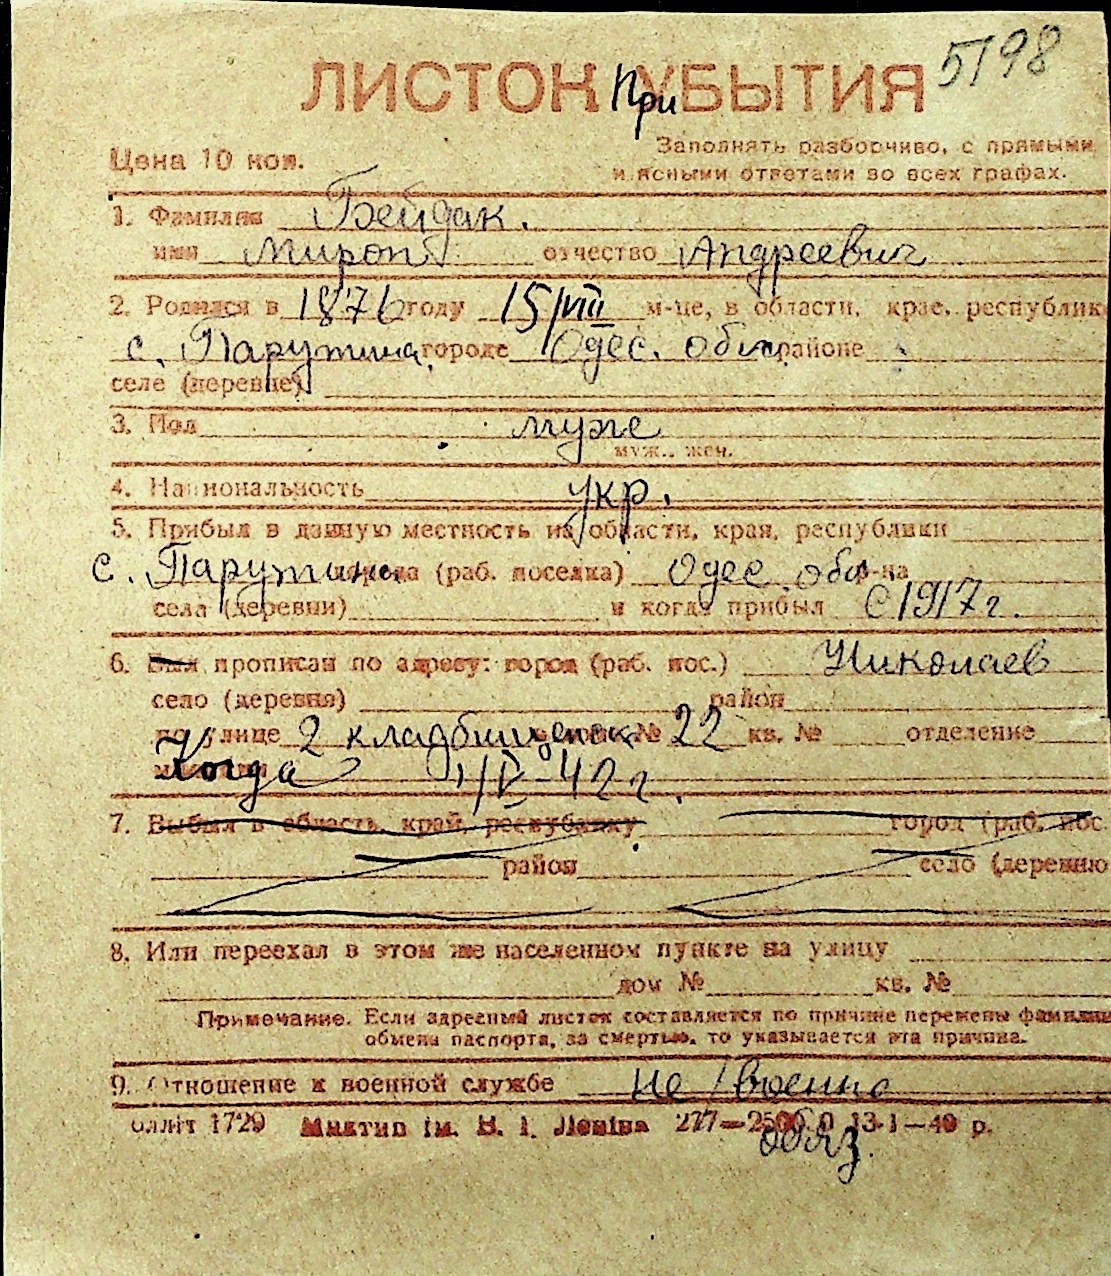 5198
ЛИСТОК При УБЫТИЯ
Цена 10 коп.
Заполнять разборчиво, с прямыми
и ясными ответами во всех графах.
1. Фамилия Бейдак.
имя Мирон отчество Андреевич
2. Родился в 1876 году 15/VIII м-це, в области, крае, республик
с. Парутина, городе Одес. обл. районе
селе (деревне)
3. Пол муж
муж., жен.
4. Национальность укр.
5. Прибыл в данную местность из области, края, республики
с. Парутино города (раб. поселка) Одес. обл. р-на
села (деревни) и когда прибыл с 1917 г.
6. Был прописан по адресу: город (раб. пос.) Николаев
село (деревня) район
по улице 2 кладбищенск № 22 кв. № отделение
Когда 1/V-42 г.
7. Выбыл в область, край, республику город (раб. пос.
район село (деревню
8. Или переехал в этом же населенном пункте на улицу
дом № кв. №
Примечание. Если адресный листок составляется по причине перемены фамилии
обмена паспорта, за смертью, то указывается эта причина.
9. Отношение к военной службе не военно
облліт 1729 Миктип ім. В. І. Леніна 277—2500.0 13-1—40 р.
обяз.